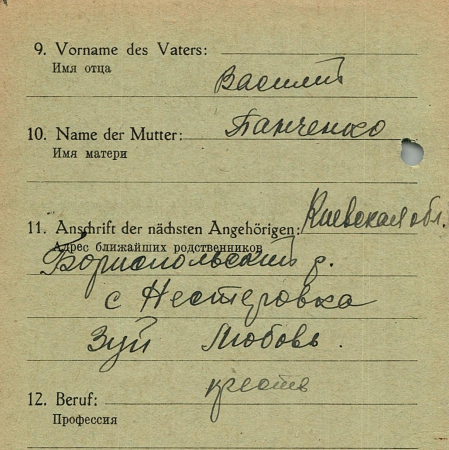 9. Vorname des Vaters:
Имя отца
Василий
10. Name der Mutter: Панченко
Имя матери
11. Anschrift der nächsten Angehörigen: Киевская обл.
Адрес ближайших родственников
Бориспольский р.
с Нестеровка
Зуй Любовь.
12. Beruf: крестя
Профессия